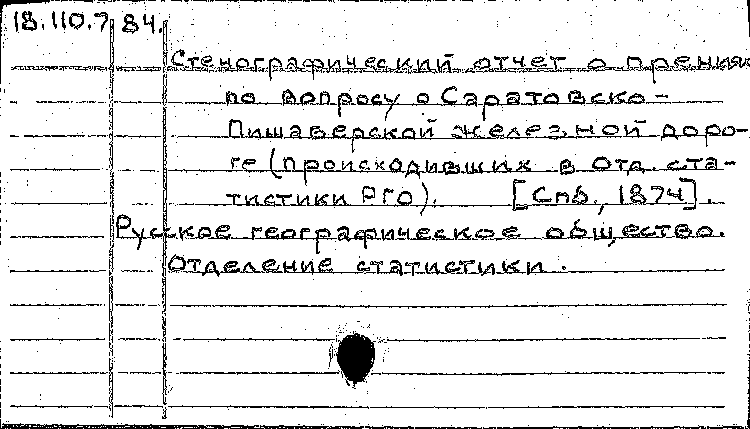 18.110.7 84.
Стенографический отчет о прениях
по вопросу о Саратовско-
Пишаверской железной доро-
ге (происходивших в Отд. ста-
тистики РГО). [Спб., 1874].
Русское географическое общество.
Отделение статистики.